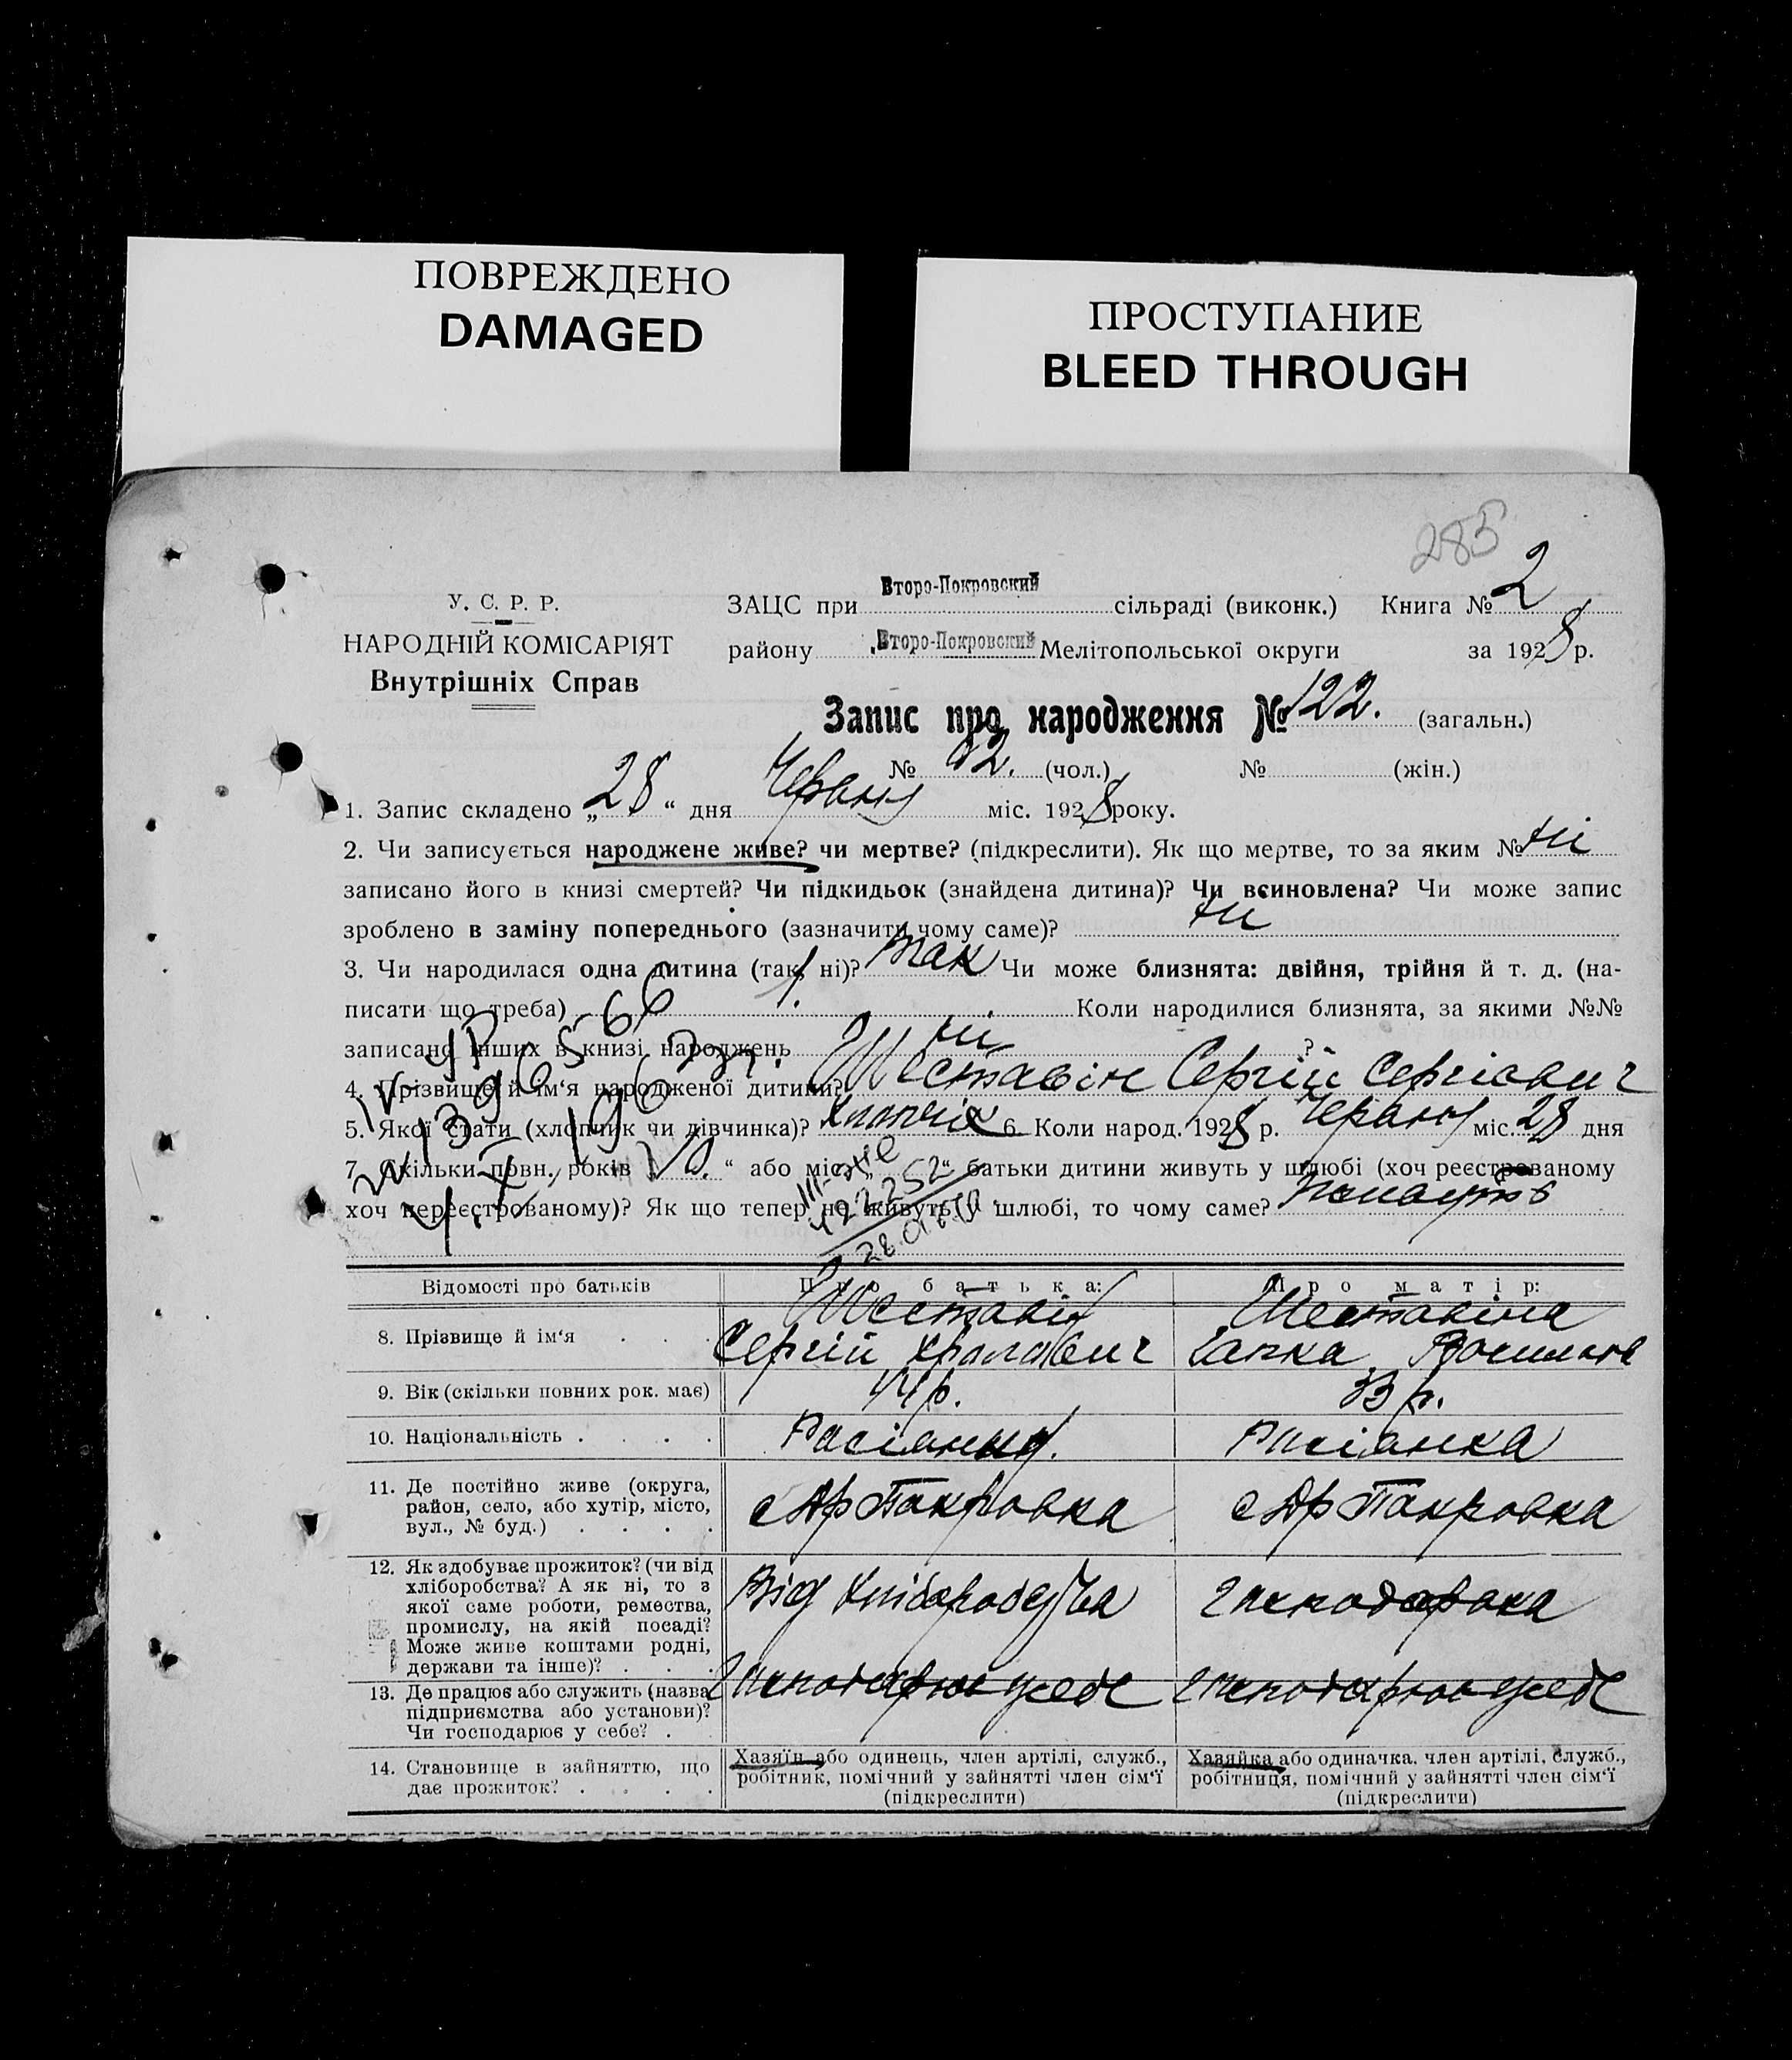 ПОВРЕЖДЕНО
DAMAGED
ПРОСТУПАНИЕ
BLEED THROUGH
285
У. С. Р. Р.
НАРОДНІЙ КОМІСАРІЯТ
Внутрішніх Справ
ЗАЦС при Второ-Покровский сільраді (виконк.) Книга № 2
району Второ-Покровский Мелітопольської округи за 1928 р.
Запис про народження № 122. (загальн.)
№ 62. (чол.) № (жін.)
1. Запис складено „28“ дня Червня міс. 1928 року.
2. Чи записується народжене живе? чи мертве? (підкреслити). Як що мертве, то за яким № ні
записано його в книзі смертей? Чи підкидьок (знайдена дитина)? Чи всиновлена? Чи може запис
зроблено в заміну попереднього (зазначити чому саме)? ні
3. Чи народилася одна дитина (так, ні)? Так Чи може близнята: двійня, трійня й т. д. (на-
писати що треба) Коли народилися близнята, за якими №№
записано інших в книзі народжень ні ?
4. Прізвище й ім‘я народженої дитини? Шеставін Сергій Сергіович
5. Якої статі (хлопчик чи дівчинка)? хлопчік 6. Коли народ. 1928 р. Червня міс. 28 дня
7. Скільки повн. років 10. “ або міс. „ “ батьки дитини живуть у шлюбі (хоч реєстрованому
хоч нереєстрованому)? Як що тепер не живуть у шлюбі, то чому саме?
422252
Відомості про батьків Про батька: Про матір:
8. Прізвище й ім‘я Шеставін Шеставіна
Сергій Ганка
9. Вік (скільки повних рок. має) 41 р. 33 р.
10. Національність Расіанин. Расіанка
11. Де постійно живе (округа, район, село, або хутір, місто, вул., № буд.) с Др Покровка с Др Покровка
12. Як здобуває прожиток? (чи від
хліборобства? А як ні, то з
якої саме роботи, ремества,
промислу, на якій посаді?
Може живе коштами родні,
держави та інше)? Від хліборобства господарока
13. Де працює або служить (назва
підприємства або установи)?
Чи господарює у себе? господарює у себе господарює у себе
14. Становище в зайняттю, що
дає прожиток?
Хазяїн або одинець, член артілі, служб.,
робітник, помічний у зайнятті член сім‘ї
(підкреслити)
Хазяйка або одиначка, член артілі, служб.,
робітниця, помічний у зайнятті член сім‘ї
(підкреслити)